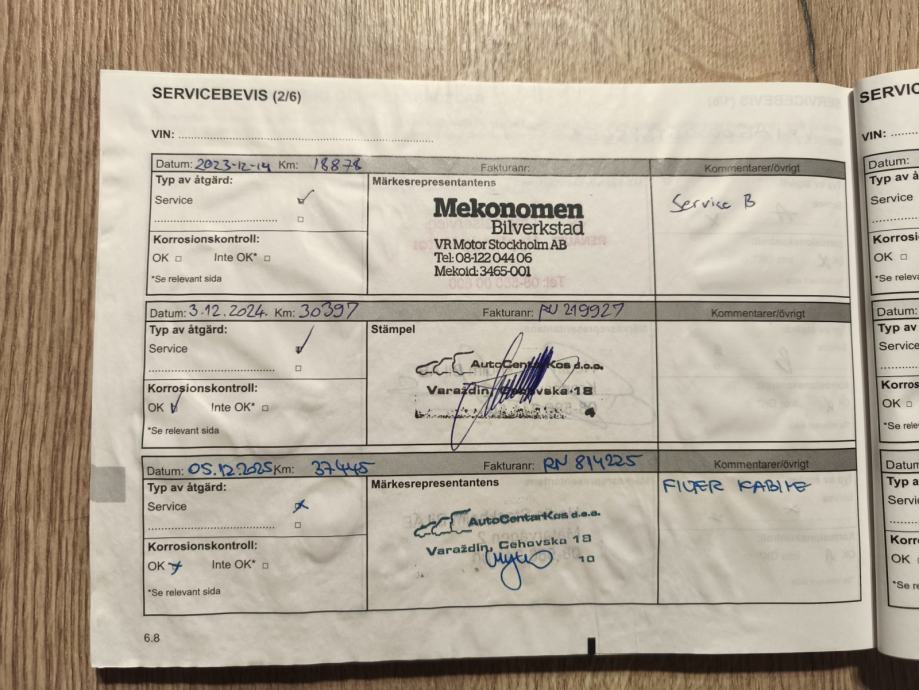 SERVICEBEVIS (2/6)
VIN:
Datum: 2023-12-14 Km: 18878 Fakturanr: Kommentarer/övrigt
Typ av åtgärd:
Service
Korrosionskontroll:
OK Inte OK*
*Se relevant sida
Märkesrepresentantens
Mekonomen
Bilverkstad
VR Motor Stockholm AB
Tel: 08-122 044 06
Mekoid: 3465-001
Service B
Datum: 3.12.2024. Km: 30397 Fakturanr: RN 219927 Kommentarer/övrigt
Typ av åtgärd:
Service
Korrosionskontroll:
OK Inte OK*
*Se relevant sida
Stämpel
AutoCentar Kos d.o.o.
Varaždin, Cehovska 18
4
Datum: 05.12.2025 Km: 37445 Fakturanr: RN 814225 Kommentarer/övrigt
Typ av åtgärd:
Service
Korrosionskontroll:
OK Inte OK*
*Se relevant sida
Märkesrepresentantens
AutoCentar Kos d.o.o.
Varaždin, Cehovska 18
10
FILTER KABINE
6.8
SERVIC
VIN:
Datum:
Typ av å
Service
Korrosio
OK
*Se releva
Datum:
Typ av
Service
Korros
OK
*Se rele
Datum
Typ a
Servic
Korro
OK
*Se re